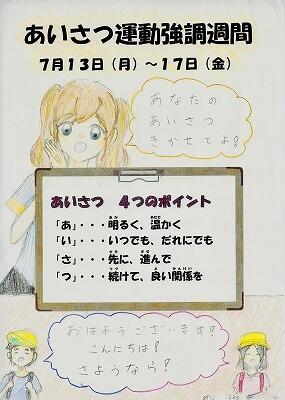 あいさつ運動強調週間
7月13日（月）～17日（金）
あなたの
あいさつ
きかせてよ！
あいさつ 4つのポイント
「あ」・・・明るく、温かく
「い」・・・いつでも、だれにでも
「さ」・・・先に、進んで
「つ」・・・続けて、良い関係を
おはようございます！
こんにちは！
さようなら！